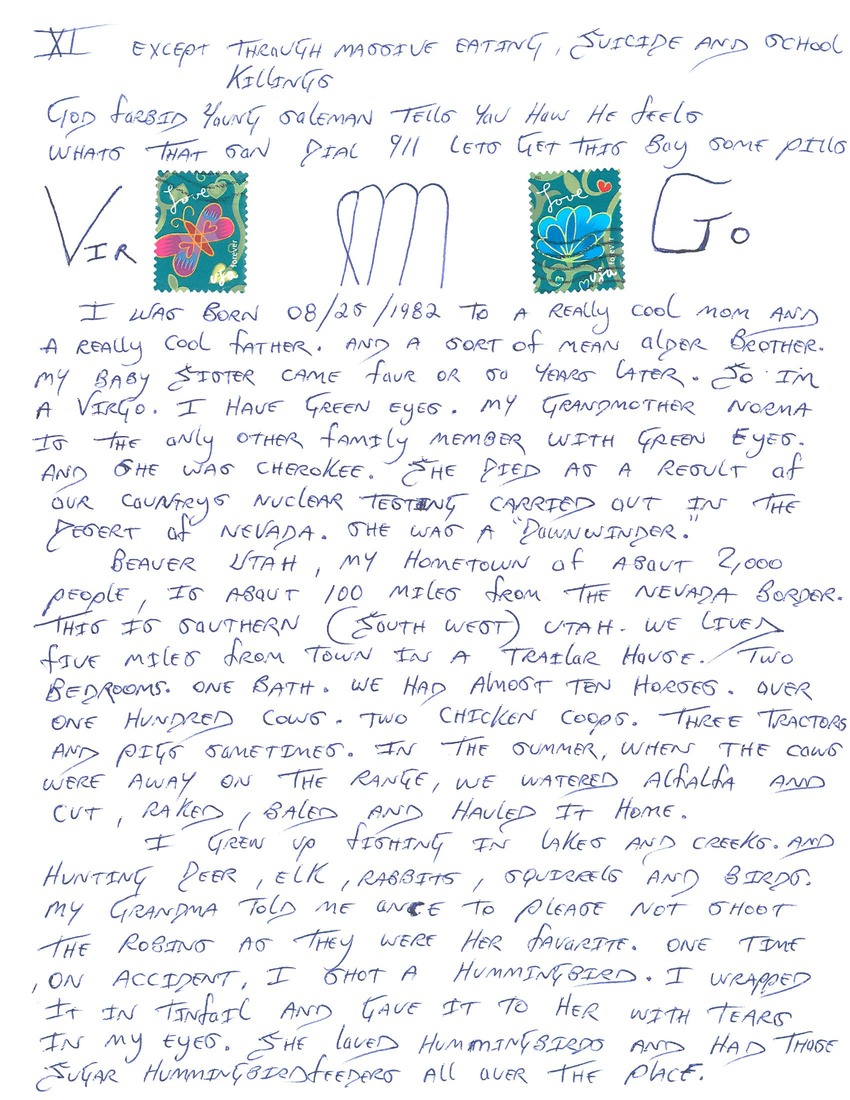 XI EXCEPT THROUGH MASSIVE EATING, SUICIDE AND SCHOOL
KILLINGS
GOD FORBID YOUNG SOLEMAN TELLS YOU HOW HE FEELS
WHATS THAT SON DIAL 911 LETS GET THIS BOY SOME PILLS
VIR Love forever USA M Love forever USA GO
I WAS BORN 08/25/1982 TO A REALLY COOL MOM AND
A REALLY COOL FATHER. AND A SORT OF MEAN OLDER BROTHER.
MY BABY SISTER CAME FOUR OR SO YEARS LATER. SO I'M
A VIRGO. I HAVE GREEN EYES. MY GRANDMOTHER NORMA
IS THE ONLY OTHER FAMILY MEMBER WITH GREEN EYES.
AND SHE WAS CHEROKEE. SHE DIED AS A RESULT OF
OUR COUNTRYS NUCLEAR TESTING CARRIED OUT IN THE
DESERT OF NEVADA. SHE WAS A "DOWNWINDER."
BEAVER UTAH, MY HOMETOWN OF ABOUT 2,000
PEOPLE, IS ABOUT 100 MILES FROM THE NEVADA BORDER.
THIS IS SOUTHERN (SOUTH WEST) UTAH. WE LIVED
FIVE MILES FROM TOWN IN A TRAILOR HOUSE. TWO
BEDROOMS. ONE BATH. WE HAD ALMOST TEN HORSES. OVER
ONE HUNDRED COWS. TWO CHICKEN COOPS. THREE TRACTORS
AND PIGS SOMETIMES. IN THE SUMMER, WHEN THE COWS
WERE AWAY ON THE RANGE, WE WATERED ALFALFA AND
CUT, RAKED, BALED AND HAULED IT HOME.
I GREW UP FISHING IN LAKES AND CREEKS. AND
HUNTING DEER, ELK, RABBITS, SQUIRRELS AND BIRDS.
MY GRANDMA TOLD ME ONCE TO PLEASE NOT SHOOT
THE ROBINS AS THEY WERE HER FAVORITE. ONE TIME
, ON ACCIDENT, I SHOT A HUMMINGBIRD. I WRAPPED
IT IN TINFOIL AND GAVE IT TO HER WITH TEARS
IN MY EYES. SHE LOVED HUMMINGBIRDS AND HAD THOSE
SUGAR HUMMINGBIRDFEEDERS ALL OVER THE PLACE.